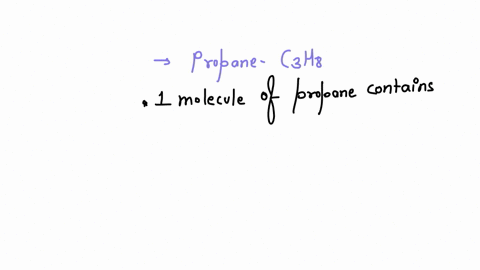 → Propane- C3H8
. 1 molecule of propane contains